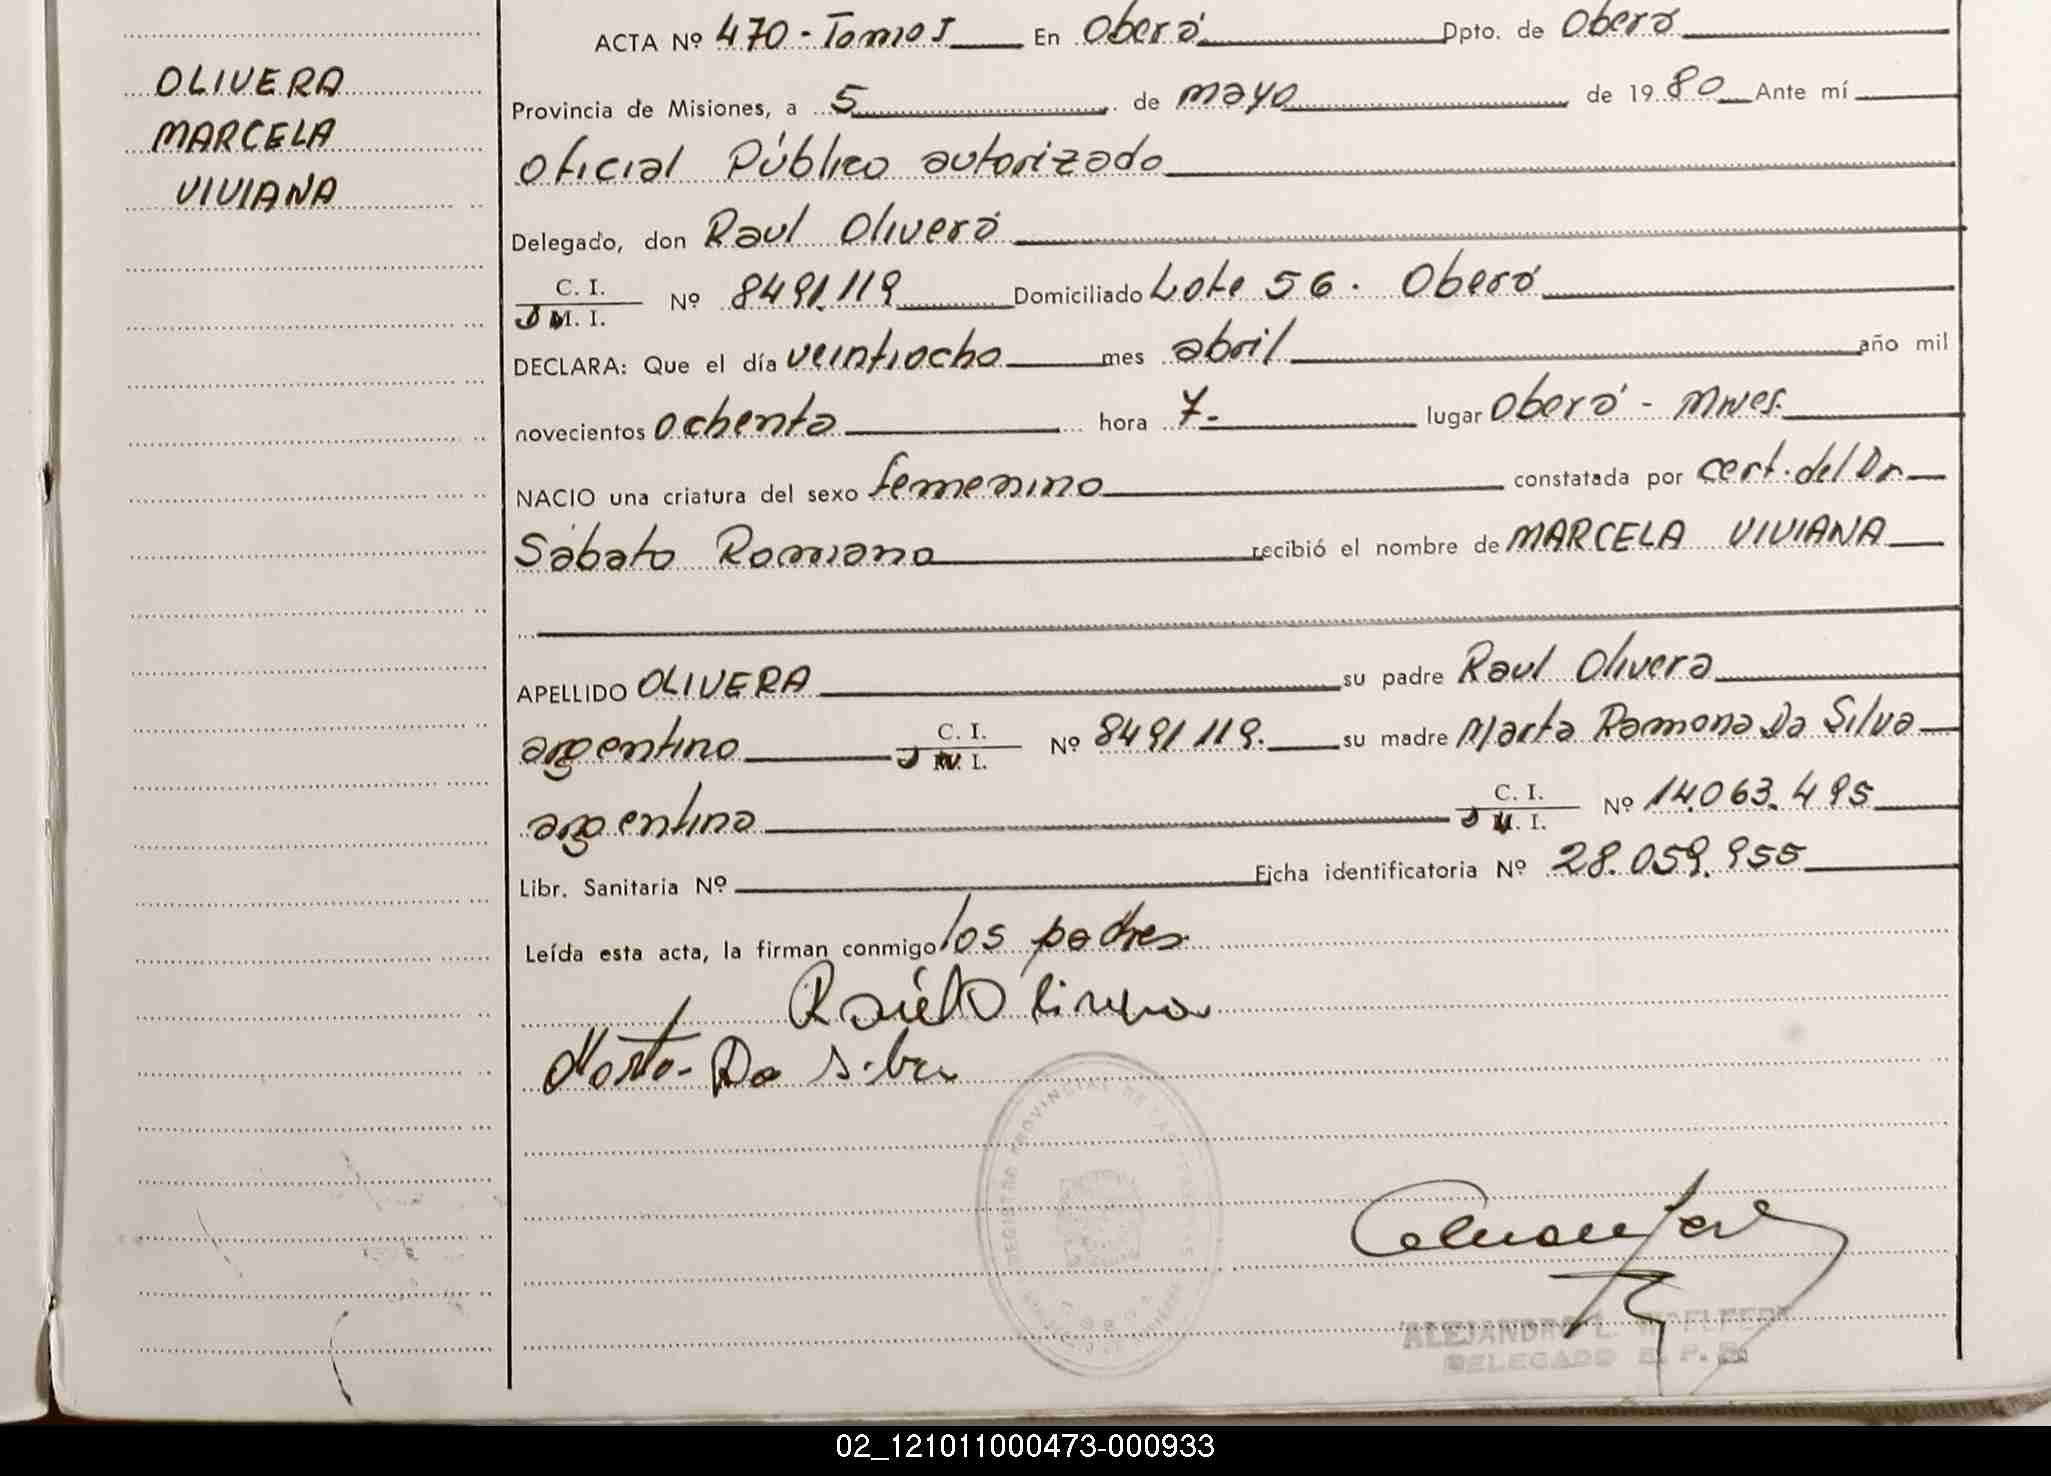 OLIVERA
MARCELA
VIVIANA
ACTA Nº 470 - Tomo I En Oberá Dpto. de Oberá
Provincia de Misiones, a 5 de mayo de 1980 Ante mí
Oficial Público autorizado
Delegado, don Raul Olivera
C. I.
M. I.
Nº 8491.119 Domiciliado Lote 56. Oberá
DECLARA: Que el día veintiocho mes abril año mil
novecientos ochenta hora 7.- lugar Oberá - Mnes.
NACIO una criatura del sexo femenino constatada por cert. del Dr.
Sábato Romano recibió el nombre de MARCELA VIVIANA
APELLIDO OLIVERA su padre Raul Olivera
argentino C. I. M. I. Nº 8491119. su madre Marta Ramona Da Silva
argentina C. I. M. I. Nº 14.063.495
Libr. Sanitaria Nº Ficha identificatoria Nº 28.059.955
Leída esta acta, la firman conmigo los padres
Raúl Olivera
Marta Da Silva
REGISTRO PROVINCIAL DE LAS PERSONAS
ALEJANDRO L.
DELEGADO R. P. P.
02_121011000473-000933